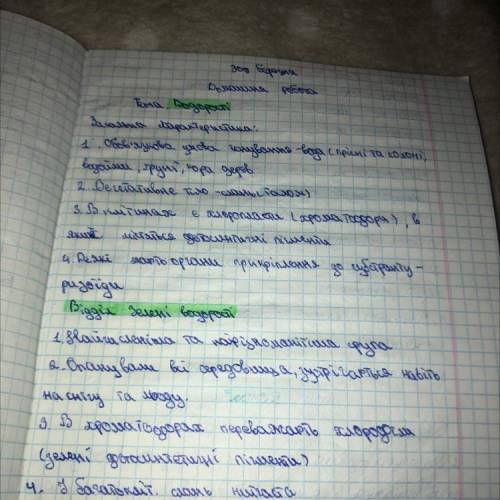 30 березня
Домашня робота
Тема: Водорості
Загальна характеристика:
1. Обов'язкова умова існування - вода (прісні та солоні,
водойми, ґрунт, кора дерев
2. Вегетативне тіло - слань (талом)
3. В клітинах є хлоропласти (хроматофори), в
яких містяться фотосинтезні пігменти
4. Деякі мають органи прикріплення до субстрату -
ризоїди
Відділ Зелені водорості
1. Найчисленніша та найрізноманітніша група
2. Опанували всі середовища, зустрічаються навіть
на снігу та льоду.
3. В хроматофорах переважають хлорофіли
(зелені фотосинтетичні пігменти)
4. У багатокліт. слань нитчата